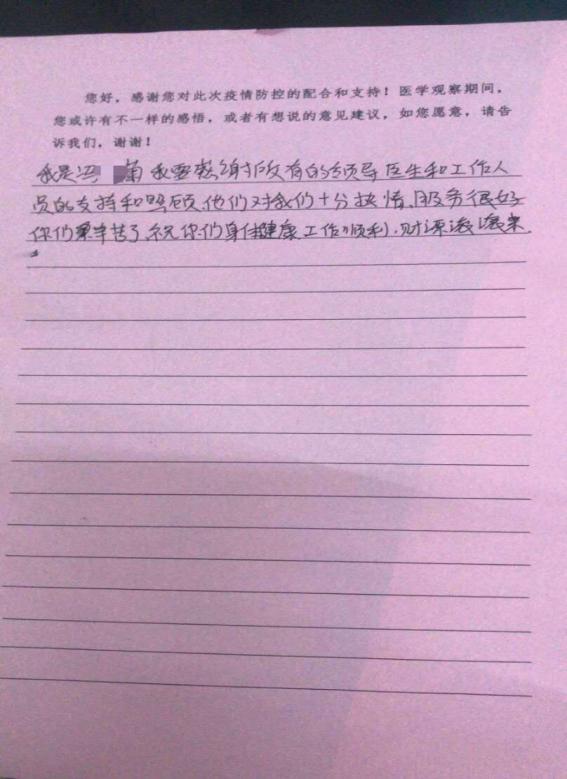 您好，感谢您对此次疫情防控的配合和支持！医学观察期间，
您或许有不一样的感悟，或者有想说的意见建议，如您愿意，请告
诉我们，谢谢！
我是冯 菊 我要感谢所有的领导医生和工作人
员的支持和照顾，他们对我们十分热情，服务很好
你们辛苦了，祝你们身体健康工作顺利，财源滚滚来.